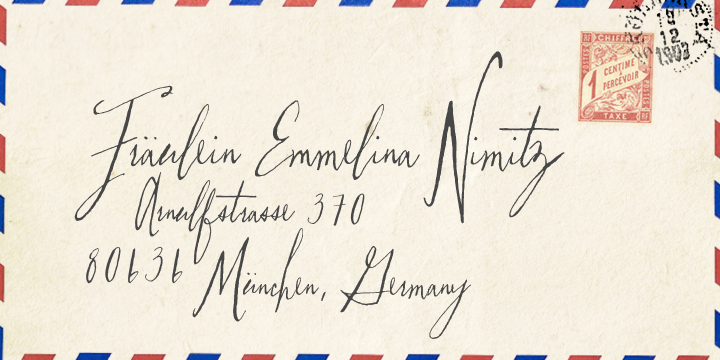 CHIFFRE
1 CENTIME
à PERCEVOIR
TAXE
19
12
1903
Fräulein Emmelina Nimitz
Arnulfstrasse 370
80636 München, Germany